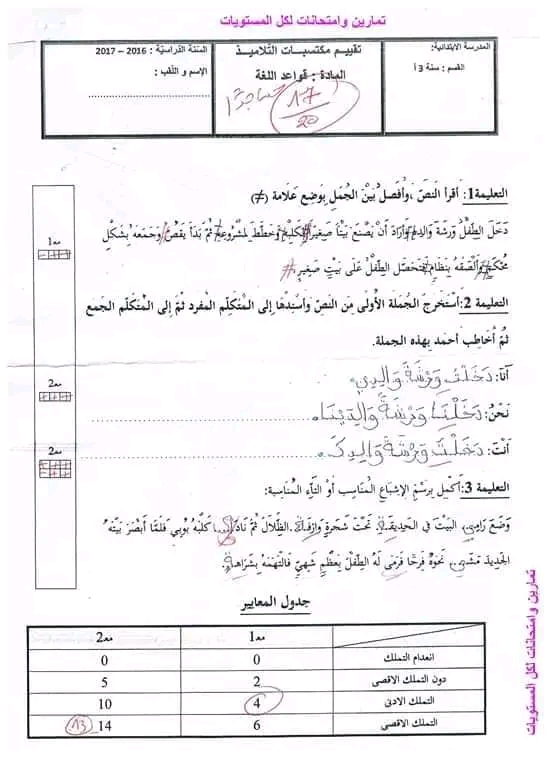 تمارين وامتحانات لكل المستويات
المدرسة الابتدائية:
القسم : سنة 3 أ
تقييم مكتسبات التلاميذ
المادة : قواعد اللغة
17
20
السنة الدراسية : 2016 – 2017
الإسم و اللقب :
التعليمة1: أقرأ النص ،وأفصل بين الجمل بوضع علامة (≠)
دخل الطفل ورشة والده وأراد أن يصنع بيتا صغيرا لكلبه وخطط لمشروعه ثم بدأ يقص وجمعه بشكل
محكم وألصقه بنظام فتحصل الطفل على بيت صغير
مع1
التعليمة 2: أستخرج الجملة الأولى من النص وأسندها إلى المتكلم المفرد ثم إلى المتكلم الجمع
ثم أخاطب أحمد بهذه الجملة.
أنا: دخلت ورشة والدي
مع2
نحن: دخلنا ورشة والدينا
أنت: دخلت ورشة والدك
مع2
التعليمة 3: أكمل برسم الإشباع المناسب أو التاء المناسبة:
وضع رامي البيت في الحديقة تحت شجرة وارفة الظلال ثم نادى كلبه بوبي فلما أبصر بيته
الجديد مشى نحوه فرحا فرمى له الطفل بعظم شهي فالتهمه بشراهة
جدول المعايير
مع1 مع2
انعدام التملك 0 0
دون التملك الاقصى 2 5
التملك الادنى 4 10
التملك الاقصى 6 14 13
تمارين وامتحانات لكل المستويات